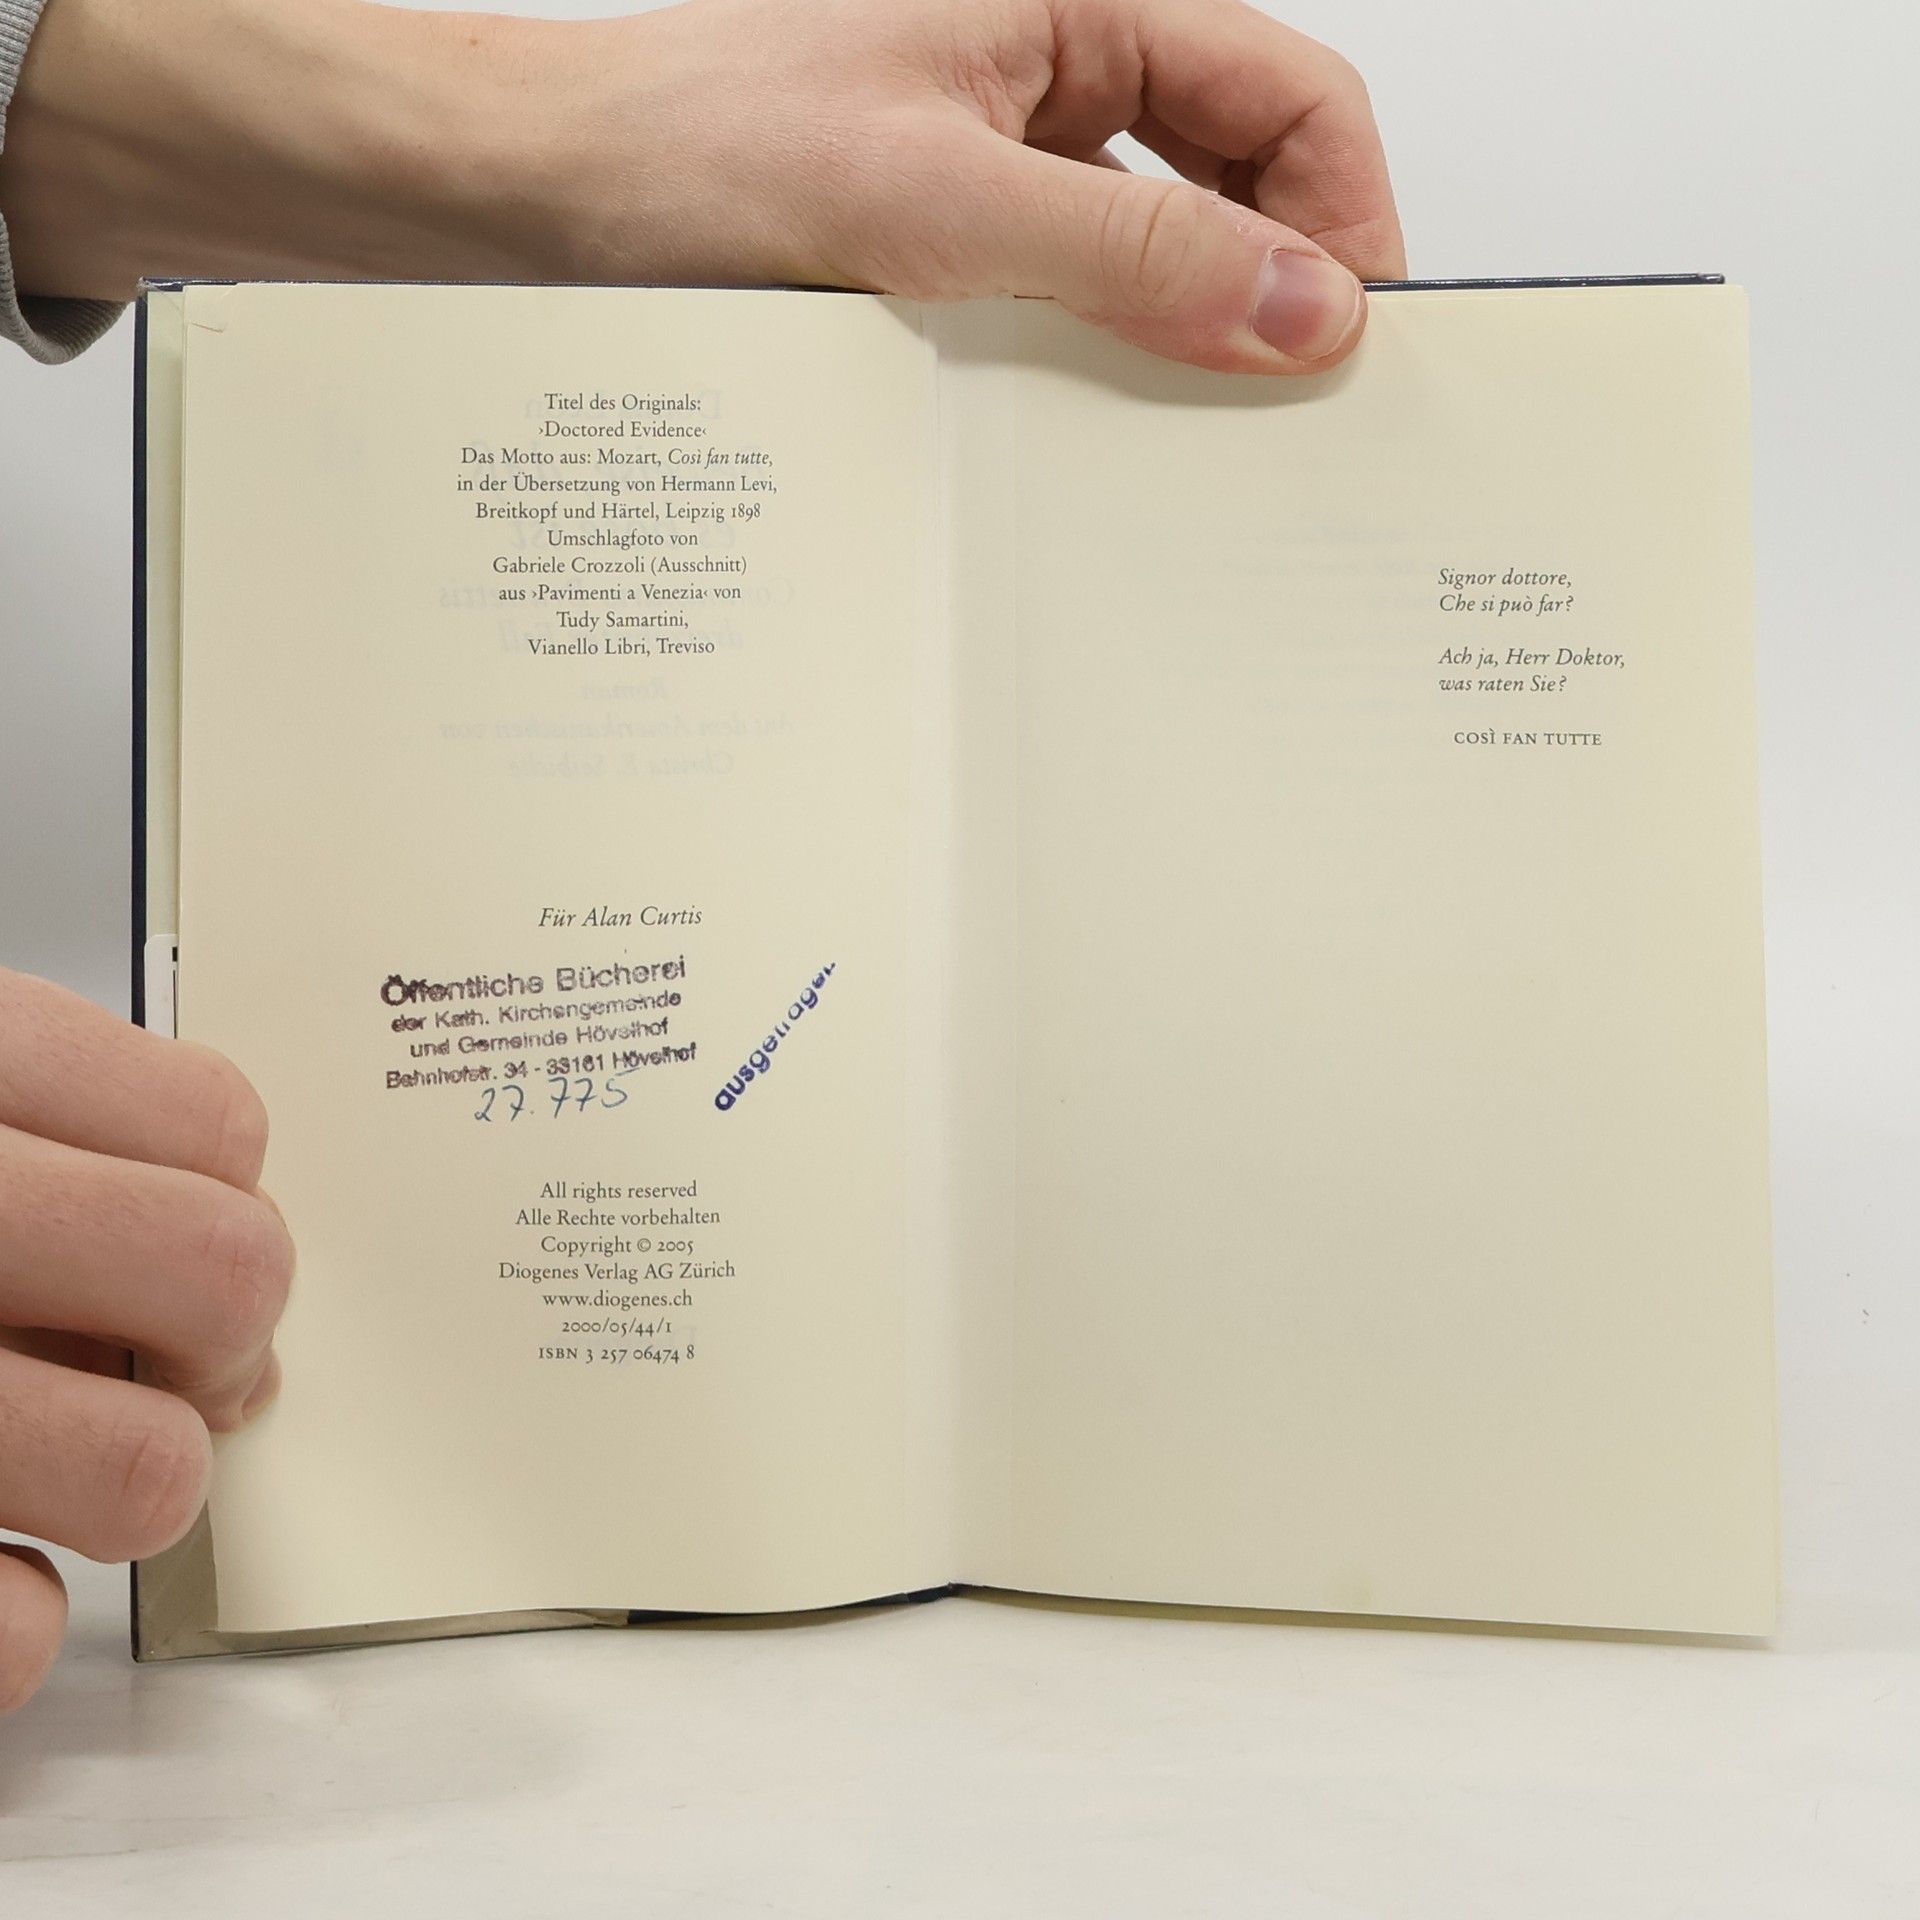 Titel des Originals:
›Doctored Evidence‹
Das Motto aus: Mozart, Così fan tutte,
in der Übersetzung von Hermann Levi,
Breitkopf und Härtel, Leipzig 1898
Umschlagfoto von
Gabriele Crozzoli (Ausschnitt)
aus ›Pavimenti a Venezia‹ von
Tudy Samartini,
Vianello Libri, Treviso
Für Alan Curtis
Öffentliche Bücherei
der Kath. Kirchengemeinde
und Gemeinde Hövelhof
Bahnhofstr. 34 - 33161 Hövelhof
27.775
ausgetragen
All rights reserved
Alle Rechte vorbehalten
Copyright © 2005
Diogenes Verlag AG Zürich
www.diogenes.ch
2000/05/44/1
ISBN 3 257 06474 8
Signor dottore,
Che si può far?
Ach ja, Herr Doktor,
was raten Sie?
COSÌ FAN TUTTE